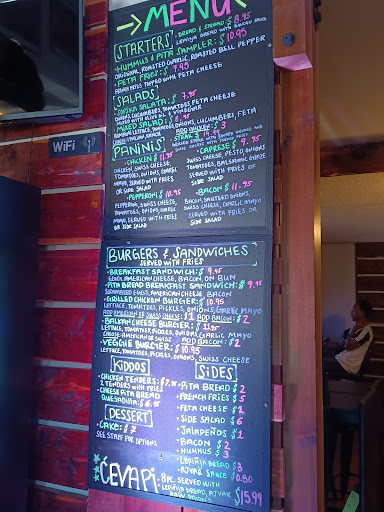 MENU
STARTERS
• BREAD & SPREAD: $ 8.95
LEPINJA BREAD WITH AJVAR SAUCE
• HUMMUS & PITA SAMPLER: $ 10.95
ORIGINAL, ROASTED GARLIC, ROASTED BELL PEPPER
• FETA FRIES: $ 7.45
FRENCH FRIES TOPPED WITH FETA CHEESE
SALADS
SALATA: $ 7.95
ONIONS, CUCUMBERS, TOMATOES, FETA CHEESE
MIXED WITH OLIVE OIL & VINEGAR
• MIXED SALAD: $ 8.95
ROMAINE LETTUCE, TOMATOES, ONIONS, CUCUMBERS, FETA
ADD CHICKEN: $ 3
PANINIS
• CHICKEN: $ 11.95
CHICKEN, SWISS CHEESE,
TOMATOES, ONIONS, GARLIC
MAYO, SERVED WITH FRIES
OR SIDE SALAD
• PEPPERONI: $ 10.95
PEPPERONI, SWISS CHEESE,
TOMATOES, ONIONS, GARLIC
MAYO, SERVED WITH FRIES
OR SIDE SALAD
• CAPRESE: $ 9.95
SWISS CHEESE, PESTO, ONIONS
TOMATOES, BALSAMIC GLAZE
SERVED WITH FRIES OR
SIDE SALAD
• BACON: $ 11.95
BACON, SAUTEED ONIONS,
SWISS CHEESE, GARLIC MAYO
SERVED WITH FRIES OR
SIDE SALAD
WiFi
BURGERS & SANDWICHES
SERVED WITH FRIES
• BREAKFAST SANDWICH: $ 9.45
EGGS, AMERICAN CHEESE, BACON, ON BUN
• PITA BREAD BREAKFAST SANDWICH: $ 9.45
SCRAMBLED EGGS, AMERICAN CHEESE BACON
• GRILLED CHICKEN BURGER: $ 10.95
LETTUCE, TOMATOES, PICKLES, ONIONS, GARLIC MAYO
ADD AMERICAN OR SWISS CHEESE: $ 1 ADD BACON: $ 2
• BALKAN CHEESE BURGER: $ 11.95
LETTUCE, TOMATOES, PICKLES, ONIONS, GARLIC MAYO
CHOOSE: AMERICAN OR SWISS ADD BACON: $ 2
• VEGGIE BURGER: $ 10.95
LETTUCE, TOMATOES, PICKLES, ONIONS, SWISS CHEESE
KIDDOS
• CHICKEN TENDERS: $ 7.95
2 TENDERS WITH FRIES
• CHEESE PITA BREAD
QUESADILLA: $ 6.95
DESSERT
• CAKE: $ 7
SEE STAFF FOR OPTIONS
SIDES
• PITA BREAD $ 2
• FRENCH FRIES $ 5
• FETA CHEESE $ 2
• SIDE SALAD $ 6
• JALAPEÑOS $ 1
• BACON $ 2
• HUMMUS $ 3
• LEPINJA BREAD $ 3
• AJVAR SAUCE $ 0.50
ĆEVAPI:
8PC SERVED WITH
LEPINJA BREAD, AJVAR
$ 15.99